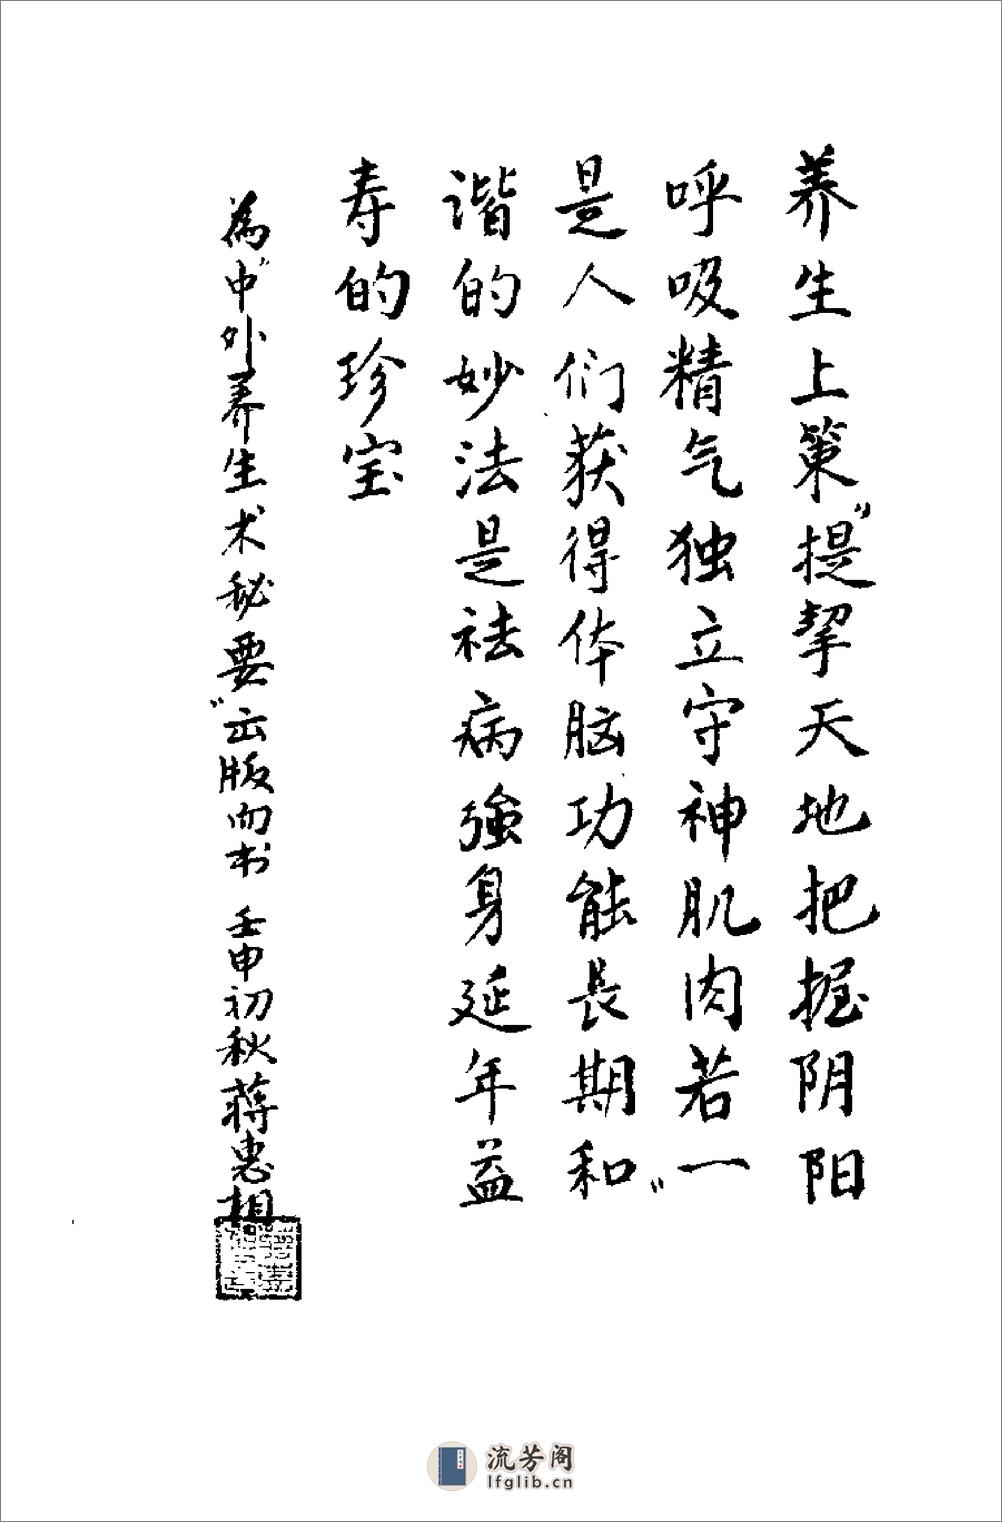 养生上策“提挈天地把握阴阳
呼吸精气独立守神肌肉若一”
是人们获得体脑功能長期和
谐的妙法是祛病強身延年益
寿的珍宝
為“中外养生术秘要”出版而书 壬申初秋蒋惠相
流芳阁
lfglib.cn